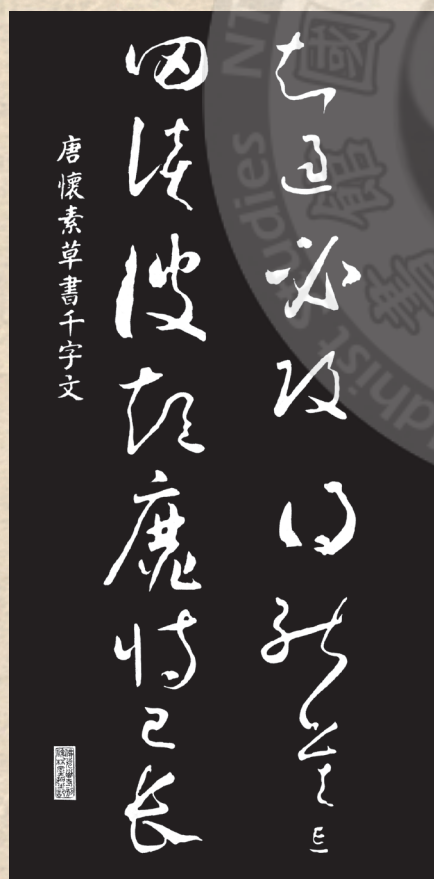 知過必改得能莫忘
罔談彼短靡恃己長
唐懷素草書千字文